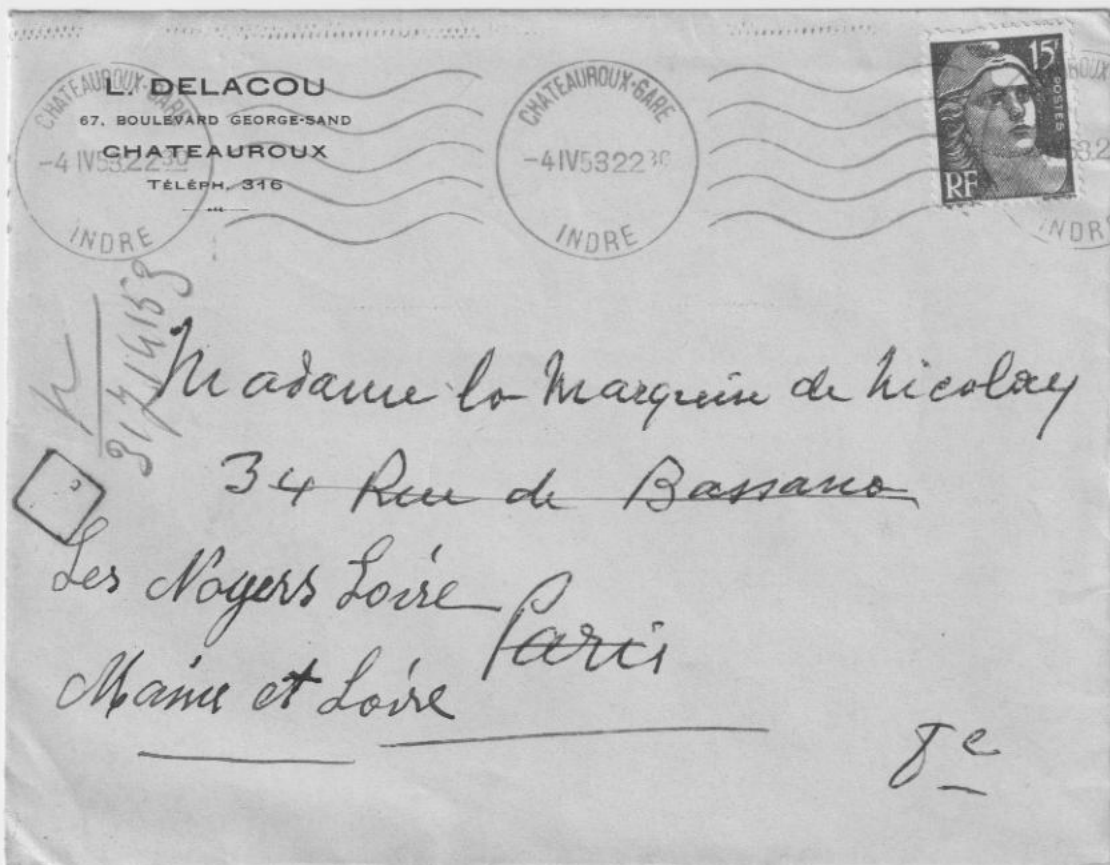 L. DELACOU
67, BOULEVARD GEORGE-SAND
CHATEAUROUX
TÉLÉPH. 316
CHATEAUROUX-GARE
-4 IV53.22 30
INDRE
CHATEAUROUX-GARE
-4 IV53 22 30
INDRE
15F
POSTES
RF
ROUX
53.2
INDR
Madame la Marquise de Nicolay
34 Rue de Bassano
Les Noyers Loire
Paris
Maine et Loire
8e